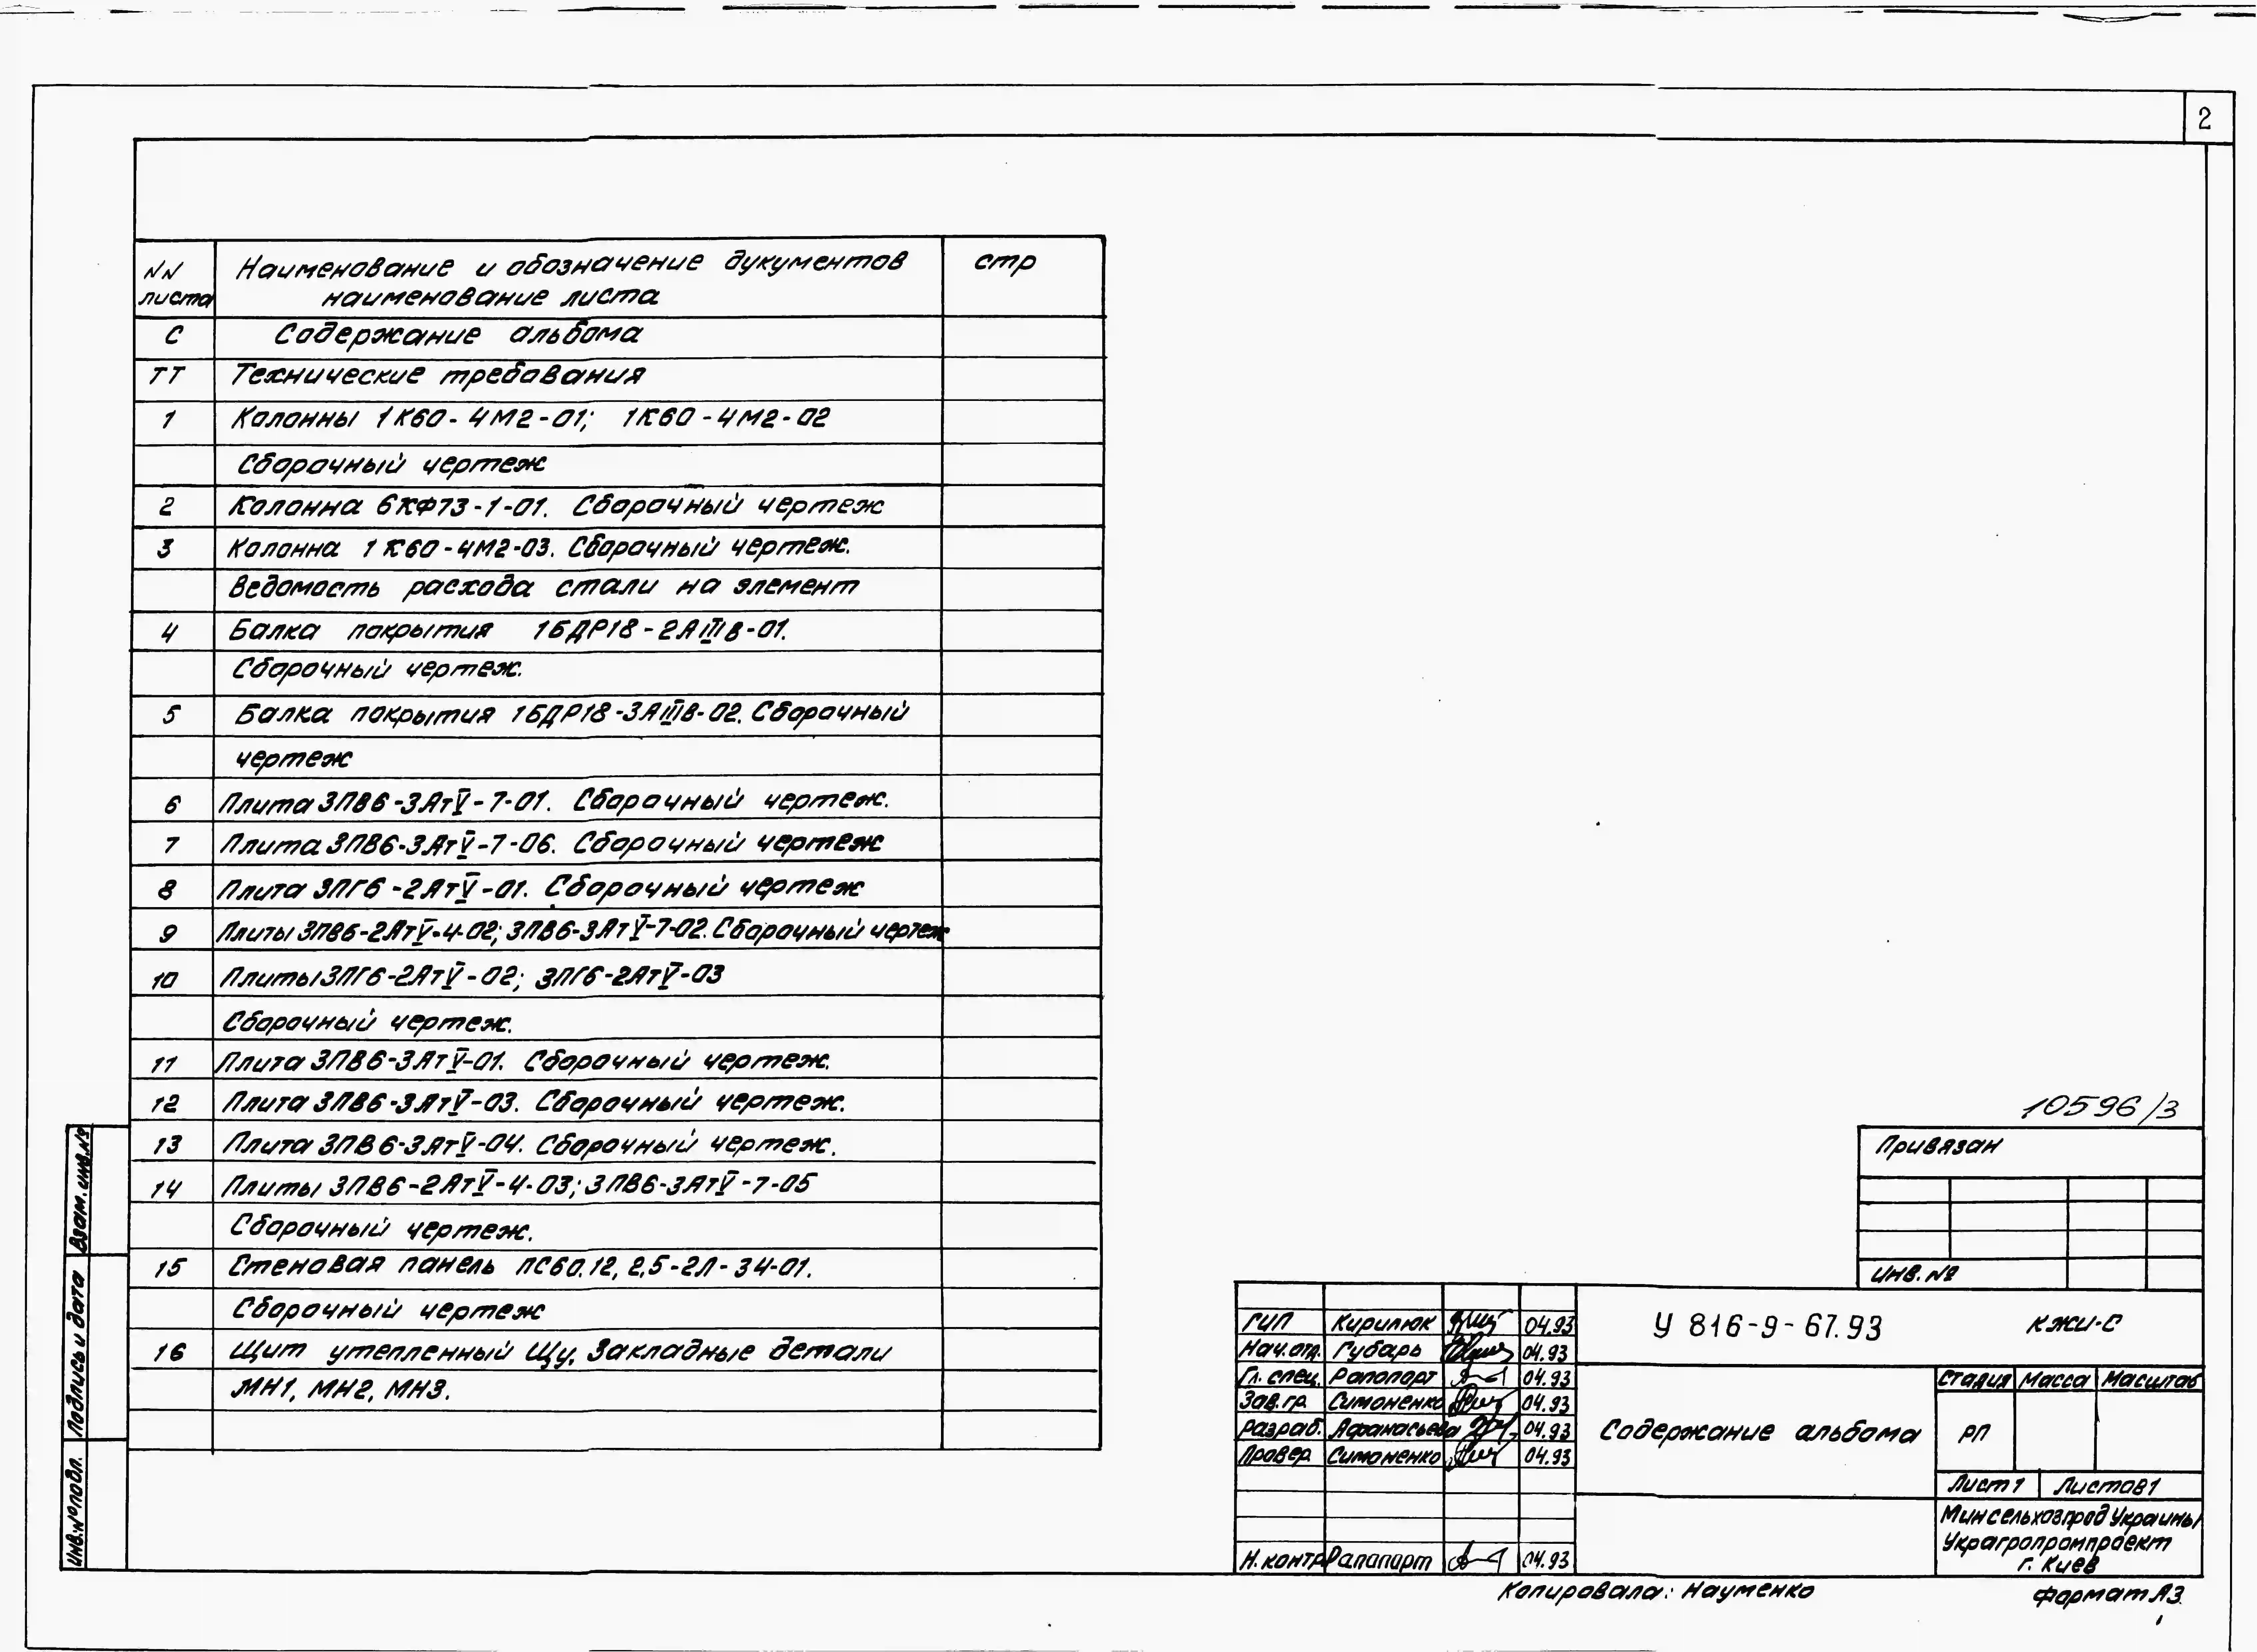 2
NN листа
Наименование и обозначение дукументов
наименование листа
стр
С Содержание альбома
ТТ Технические требования
1 Колонны 1К60-4М2-01; 1К60-4М2-02
Сборочный чертеж
2 Колонна 6КФ73-1-01. Сборочный чертеж
3 Колонна 1К60-4М2-03. Сборочный чертеж.
Ведомость расхода стали на элемент
4 Балка покрытия 1БДР18-2АIIIв-01.
Сборочный чертеж.
5 Балка покрытия 1БДР18-3АIIIв-02. Сборочный
чертеж
6 Плита 3ПВ6-3АтV-7-01. Сборочный чертеж.
7 Плита 3ПВ6-3АтV-7-06. Сборочный чертеж
8 Плита 3ПГ6-2АтV-01. Сборочный чертеж
9 Плиты 3ПВ6-2АтV-4-02; 3ПВ6-3АтV-7-02. Сборочный чертеж
10 Плиты 3ПГ6-2АтV-02; 3ПГ6-2АтV-03
Сборочный чертеж.
11 Плита 3ПВ6-3АтV-01. Сборочный чертеж.
12 Плита 3ПВ6-3АтV-03. Сборочный чертеж.
13 Плита 3ПВ6-3АтV-04. Сборочный чертеж.
14 Плиты 3ПВ6-2АтV-4-03; 3ПВ6-3АтV-7-05
Сборочный чертеж.
15 Стеновая панель ПС60.12, 2,5-2Л-34-01.
Сборочный чертеж
16 Щит утепленный Щу, Закладные детали
МН1, МН2, МН3.
Взам. инв.№
Подпись и дата
Инв.№подл.
10596/3
Привязан
Инв.№
ГИП Кирилюк 04.93
Нач.отд. Губарь 04.93
Гл. спец. Рапопорт 04.93
Зав.гр. Симоненко 04.93
Разраб. Афанасьева 04.93
Провер. Симоненко 04.93
Н.контр Рапапарт 04.93
У 816-9-67.93 КЖИ-С
Содержание альбома
Стадия Масса Масштаб
РП
Лист 1 Листов 1
Минсельхозпрод Украины
Украгропромпроект
г. Киев
Копировала: Науменко
Формат А3